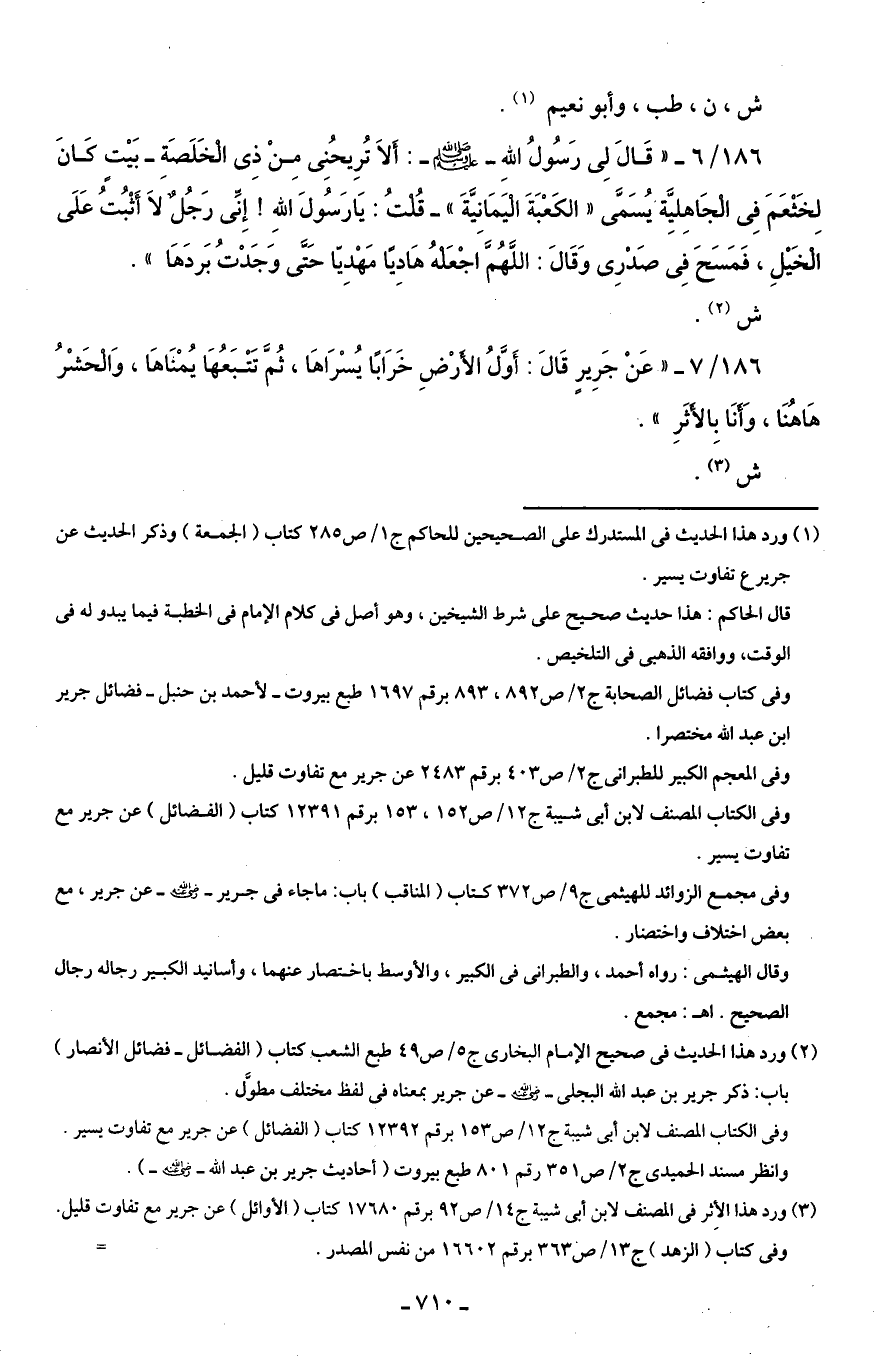 ش ، ن ، طب ، وأبو نعيم (١) .
٦/١٨٦ ـ « قَالَ لِى رَسُولُ اللهِ ـ ﷺ ـ : أَلاَ تُرِيحُنِى مِنْ ذِى الْخَلَصَةِ ـ بَيْتٍ كَانَ
لِخَثْعَمَ فِى الْجَاهِلِيَّةِ يُسَمَّى « الكَعْبَةَ الْيَمَانِيَّةَ » ـ قُلْتُ : يَارَسُولَ اللهِ ! إِنِّى رَجُلٌ لاَ أَثْبُتُ عَلَى
الْخَيْلِ ، فَمَسَحَ فِى صَدْرِى وَقَالَ : اللَّهُمَّ اجْعَلْهُ هَادِيًا مَهْدِيًا حَتَّى وَجَدْتُ بَرَدَهَا » .
ش (٢) .
٧/١٨٦ ـ « عَنْ جَرِيرٍ قَالَ : أَوَّلُ الأَرْضِ خَرَابًا يُسْرَاهَا ، ثُمَّ تَتْبَعُهَا يُمْنَاهَا ، وَالْحَشْرُ
هَاهُنَا ، وَأَنَا بِالأَثَرِ » .
ش (٣) .
(١) ورد هذا الحديث فى المستدرك على الصحيحين للحاكم ج١/ ص٢٨٥ كتاب ( الجمعة ) وذكر الحديث عن
جرير ع تفاوت يسير .
قال الحاكم : هذا حديث صحيح على شرط الشيخين ، وهو أصل فى كلام الإمام فى الخطبة فيما يبدو له فى
الوقت، ووافقه الذهبى فى التلخيص .
وفى كتاب فضائل الصحابة ج٢/ ص٨٩٢ ، ٨٩٣ برقم ١٦٩٧ طبع بيروت ـ لأحمد بن حنبل ـ فضائل جرير
ابن عبد الله مختصرا .
وفى المعجم الكبير للطبرانى ج٢/ ص٤٠٣ برقم ٢٤٨٣ عن جرير مع تفاوت قليل .
وفى الكتاب المصنف لابن أبى شيبة ج١٢/ ص١٥٢ ، ١٥٣ برقم ١٢٣٩١ كتاب ( الفضائل ) عن جرير مع
تفاوت يسير .
وفى مجمع الزوائد للهيثمى ج٩/ ص٣٧٢ كتاب ( المناقب ) باب: ماجاء فى جرير ـ رضي الله عنه ـ عن جرير ، مع
بعض اختلاف واختصار .
وقال الهيثمى : رواه أحمد ، والطبرانى فى الكبير ، والأوسط باختصار عنهما ، وأسانيد الكبير رجاله رجال
الصحيح . اهـ : مجمع .
(٢) ورد هذا الحديث فى صحيح الإمام البخارى ج٥/ ص٤٩ طبع الشعب كتاب ( الفضائل ـ فضائل الأنصار )
باب: ذكر جرير بن عبد الله البجلى ـ رضي الله عنه ـ عن جرير بمعناه فى لفظ مختلف مطولَّ .
وفى الكتاب المصنف لابن أبى شيبة ج١٢/ ص١٥٣ برقم ١٢٣٩٢ كتاب ( الفضائل ) عن جرير مع تفاوت يسير .
وانظر مسند الحميدى ج٢/ ص٣٥١ رقم ٨٠١ طبع بيروت ( أحاديث جرير بن عبد الله ـ رضي الله عنه ـ ) .
(٣) ورد هذا الأثر فى المصنف لابن أبى شيبة ج١٤/ ص٩٢ برقم ١٧٦٨٠ كتاب ( الأوائل ) عن جرير مع تفاوت قليل.
وفى كتاب ( الزهد ) ج١٣/ ص٣٦٣ برقم ١٦٦٠٢ من نفس المصدر . =
ـ ٧١٠ ـ